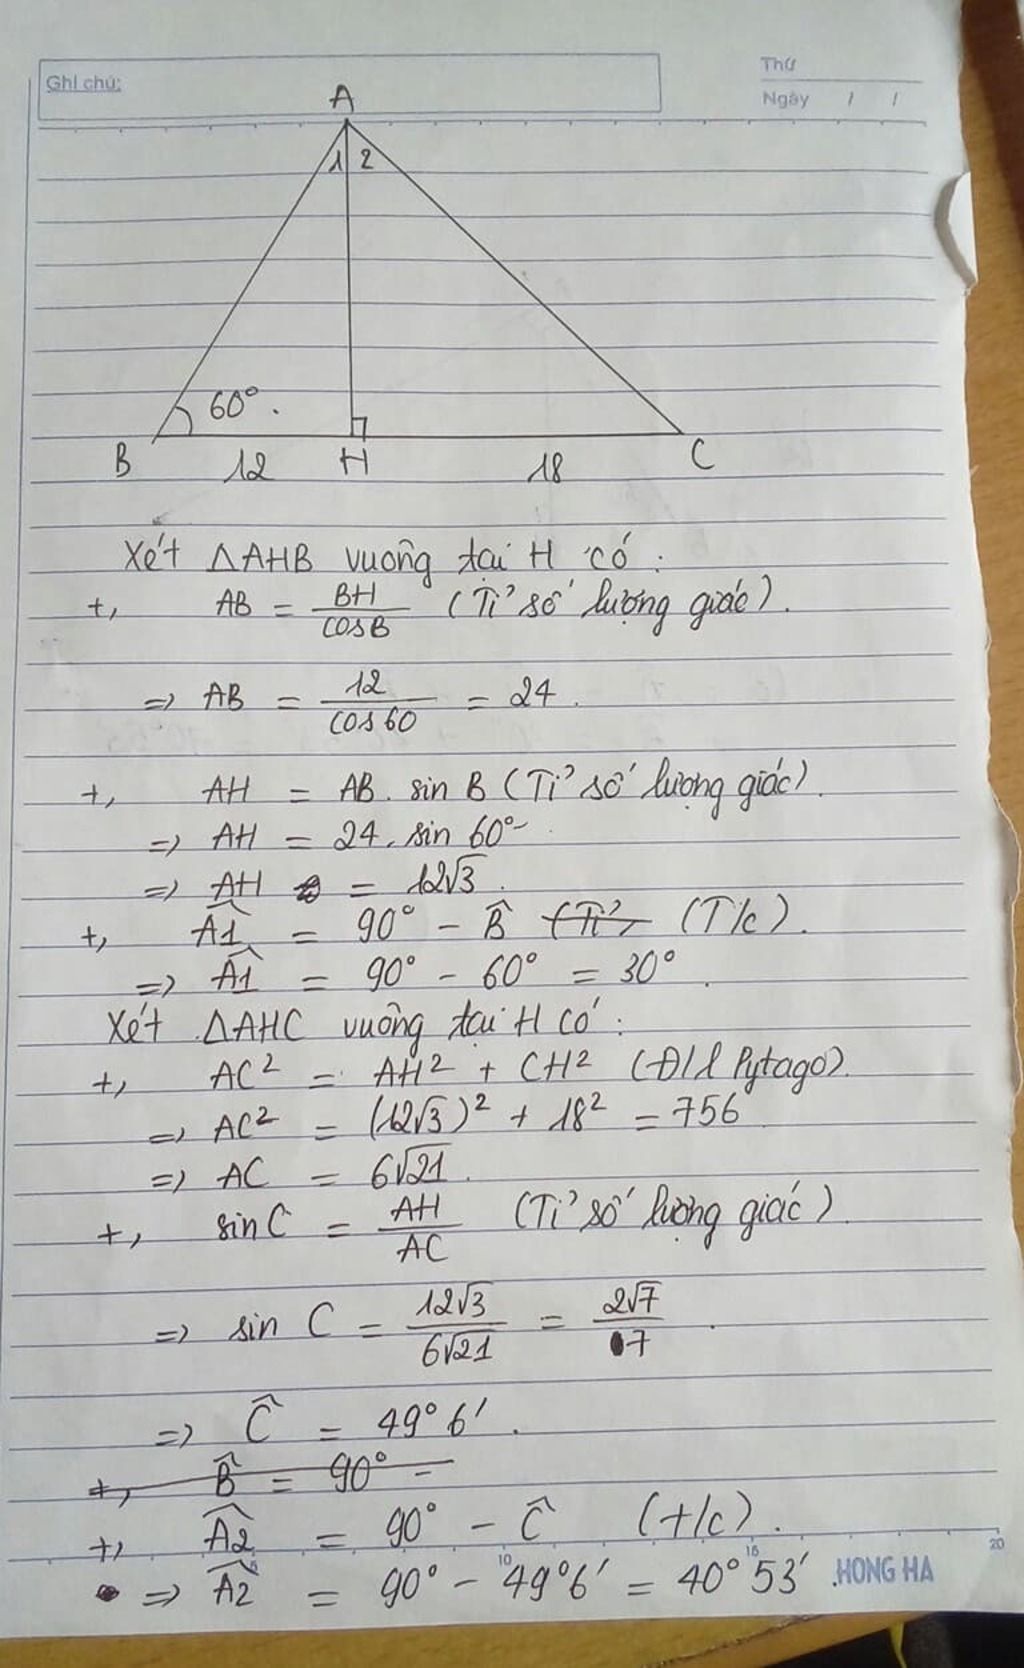 Ghi chú:
Thứ
Ngày / /
A
1 2
60°.
B 12 H 18 C
Xét ΔAHB vuông tại H có:
+, AB = BH/cosB (Tỉ số lượng giác).
=> AB = 12/cos60 = 24.
+, AH = AB. sin B (Tỉ số lượng giác).
=> AH = 24. sin 60°
=> AH = 12√3.
+, Â1 = 90° - B̂ (Tỉ, (T/c).
=> Â1 = 90° - 60° = 30°.
Xét ΔAHC vuông tại H có:
+, AC² = AH² + CH² (Đ/l Pytago).
=> AC² = (12√3)² + 18² = 756
=> AC = 6√21.
+, sin C = AH/AC (Tỉ số lượng giác).
=> sin C = 12√3/6√21 = 2√7/7.
=> Ĉ = 49°6'.
+, B̂ = 90° -
+, Â2 = 90° - Ĉ (t/c).
=> Â2 = 90° - 49°6' = 40°53'.
5 10 15 20
HONG HA